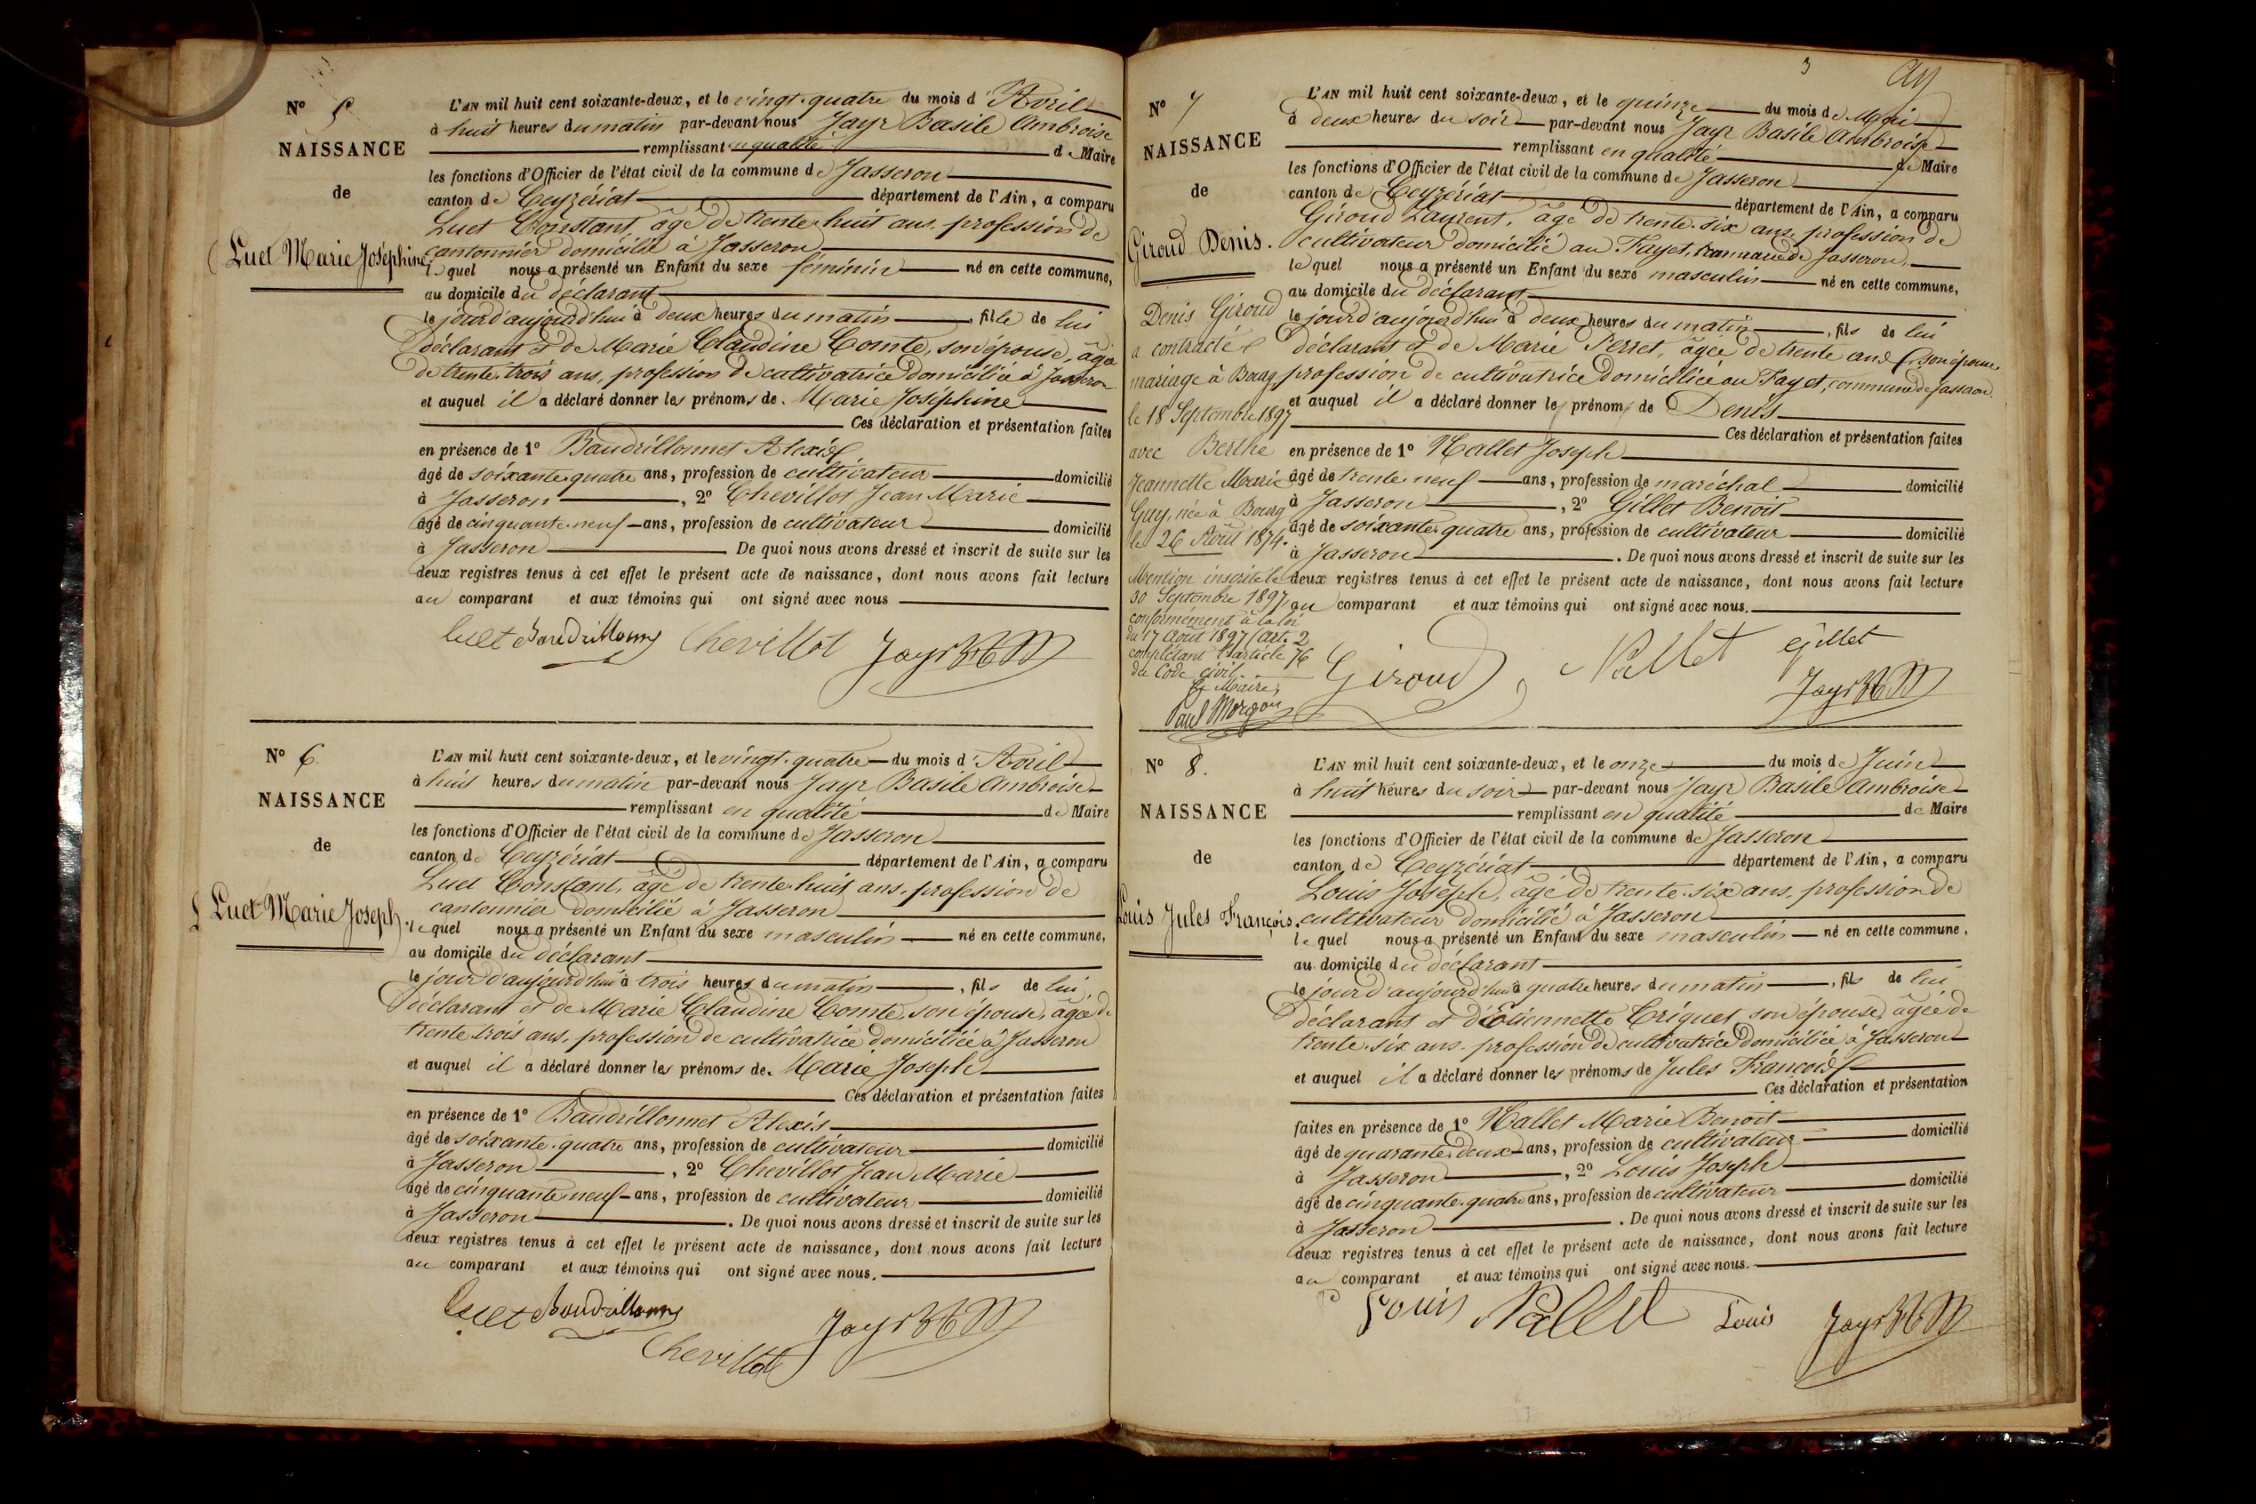 N° 5
NAISSANCE
de
Luet Marie Joséphine
L'AN mil huit cent soixante-deux, et le vingt-quatre du mois d'Avril
à huit heures du matin par-devant nous Jayr Basile Ambroise
remplissant en qualité de Maire
les fonctions d'Officier de l'état civil de la commune de Jasseron
canton de Ceyzériat département de l'Ain, a comparu
Luet Constant, âgé de trente huit ans, profession de
cantonnier domicilié à Jasseron
lequel nous a présenté un Enfant du sexe féminin né en cette commune,
au domicile du déclarant
le jour d'aujourd'hui à deux heures du matin, fille de lui
déclarant et de Marie Claudine Comte, son épouse, âgée
de trente-trois ans, profession de cultivatrice domiciliée à Jasseron
et auquel il a déclaré donner les prénoms de Marie Joséphine
Ces déclaration et présentation faites
en présence de 1° Baudrillonnet Alexis
âgé de soixante-quatre ans, profession de cultivateur domicilié
à Jasseron, 2° Chevillot Jean Marie
âgé de cinquante-neuf ans, profession de cultivateur domicilié
à Jasseron De quoi nous avons dressé et inscrit de suite sur les
deux registres tenus à cet effet le présent acte de naissance, dont nous avons fait lecture
au comparant et aux témoins qui ont signé avec nous
Luet Chevillot Jayr
N° 6
NAISSANCE
de
Luet Marie Joseph.
L'AN mil huit cent soixante-deux, et le vingt-quatre du mois d'Avril
à huit heures du matin par-devant nous Jayr Basile Ambroise
remplissant en qualité de Maire
les fonctions d'Officier de l'état civil de la commune de Jasseron
canton de Ceyzériat département de l'Ain, a comparu
Luet Constant, âgé de trente-huit ans, profession de
cantonnier domicilié à Jasseron
lequel nous a présenté un Enfant du sexe masculin né en cette commune,
au domicile du déclarant
le jour d'aujourd'hui à trois heures du matin, fils de lui
déclarant et de Marie Claudine Comte, son épouse, âgée de
trente-trois ans, profession de cultivatrice domiciliée à Jasseron
et auquel il a déclaré donner les prénoms de Marie Joseph
Ces déclaration et présentation faites
en présence de 1° Baudrillonnet Alexis
âgé de soixante-quatre ans, profession de cultivateur domicilié
à Jasseron, 2° Chevillot Jean Marie
âgé de cinquante-neuf ans, profession de cultivateur domicilié
à Jasseron. De quoi nous avons dressé et inscrit de suite sur les
deux registres tenus à cet effet le présent acte de naissance, dont nous avons fait lecture
au comparant et aux témoins qui ont signé avec nous.
Luet Jayr
Chevillot
3
N° 7
NAISSANCE
de
Giroud Denis.
Denis Giroud
a contracté
mariage à Bourg
le 18 Septembre 1897
avec Berthe
Jeannette Marie
Guy, née à Bourg
le 26 Août 1874.
Mention inscrite le
30 Septembre 1897
conformément à la loi
du 17 Août 1897 (art. 2
complétant l'article 76
du Code civil
Le Maire,
Paul Morgon
L'AN mil huit cent soixante-deux, et le quinze du mois de Mai
à deux heures du soir par-devant nous Jayr Basile Ambroise
remplissant en qualité de Maire
les fonctions d'Officier de l'état civil de la commune de Jasseron
canton de Ceyzériat département de l'Ain, a comparu
Giroud Laurent, âgé de trente-six ans, profession de
cultivateur domicilié au Fayet, commune de Jasseron
lequel nous a présenté un Enfant du sexe masculin né en cette commune,
au domicile du déclarant
le jour d'aujourd'hui à deux heures du matin, fils de lui
déclarant et de Marie Perret, âgée de trente ans (son épouse
profession de cultivatrice domiciliée au Fayet, commune de Jasseron
et auquel il a déclaré donner le prénom de Denis
Ces déclaration et présentation faites
en présence de 1° Nallet Joseph
âgé de trente-neuf ans, profession de maréchal domicilié
à Jasseron, 2° Gillet Benoit
âgé de soixante-quatre ans, profession de cultivateur domicilié
à Jasseron. De quoi nous avons dressé et inscrit de suite sur les
deux registres tenus à cet effet le présent acte de naissance, dont nous avons fait lecture
au comparant et aux témoins qui ont signé avec nous.
Giroud Nallet Gillet
Jayr
N° 8.
NAISSANCE
de
Louis Jules François.
L'AN mil huit cent soixante-deux, et le onze du mois de Juin
à huit heures du soir par-devant nous Jayr Basile Ambroise
remplissant en qualité de Maire
les fonctions d'Officier de l'état civil de la commune de Jasseron
canton de Ceyzériat département de l'Ain, a comparu
Louis Joseph, âgé de trente-six ans, profession de
cultivateur domicilié à Jasseron
lequel nous a présenté un Enfant du sexe masculin né en cette commune,
au domicile du déclarant
le jour d'aujourd'hui à quatre heures du matin, fils de lui
déclarant et d'Etiennette Criquet son épouse, âgée de
trente-six ans, profession de cultivatrice domiciliée à Jasseron
et auquel il a déclaré donner les prénoms de Jules François
Ces déclaration et présentation
faites en présence de 1° Nallet Marie Benoit
âgé de quarante-deux ans, profession de cultivateur domicilié
à Jasseron, 2° Louis Joseph
âgé de cinquante-quatre ans, profession de cultivateur domicilié
à Jasseron. De quoi nous avons dressé et inscrit de suite sur les
deux registres tenus à cet effet le présent acte de naissance, dont nous avons fait lecture
au comparant et aux témoins qui ont signé avec nous.
Louis Nallet Louis Jayr